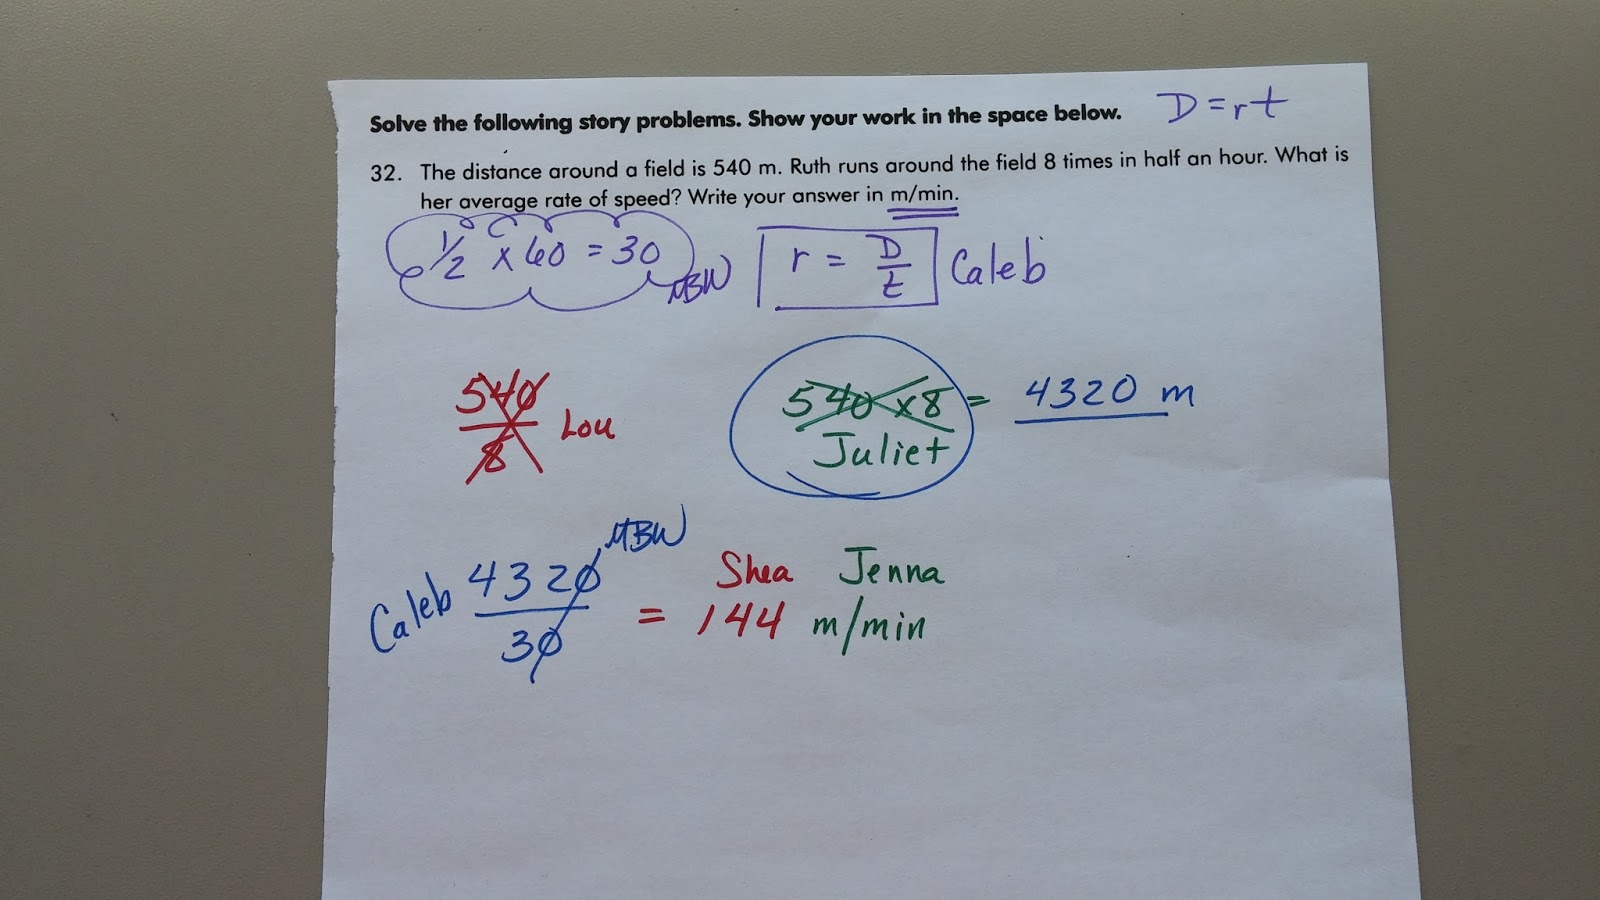 Solve the following story problems. Show your work in the space below. D = rt
32. The distance around a field is 540 m. Ruth runs around the field 8 times in half an hour. What is
her average rate of speed? Write your answer in m/min.
1/2 x 60 = 30 MBW r = D/t Caleb
540/8 Lou
540 x 8 = 4320 m
Juliet
MBW
Shea Jenna
Caleb 4320/30 = 144 m/min